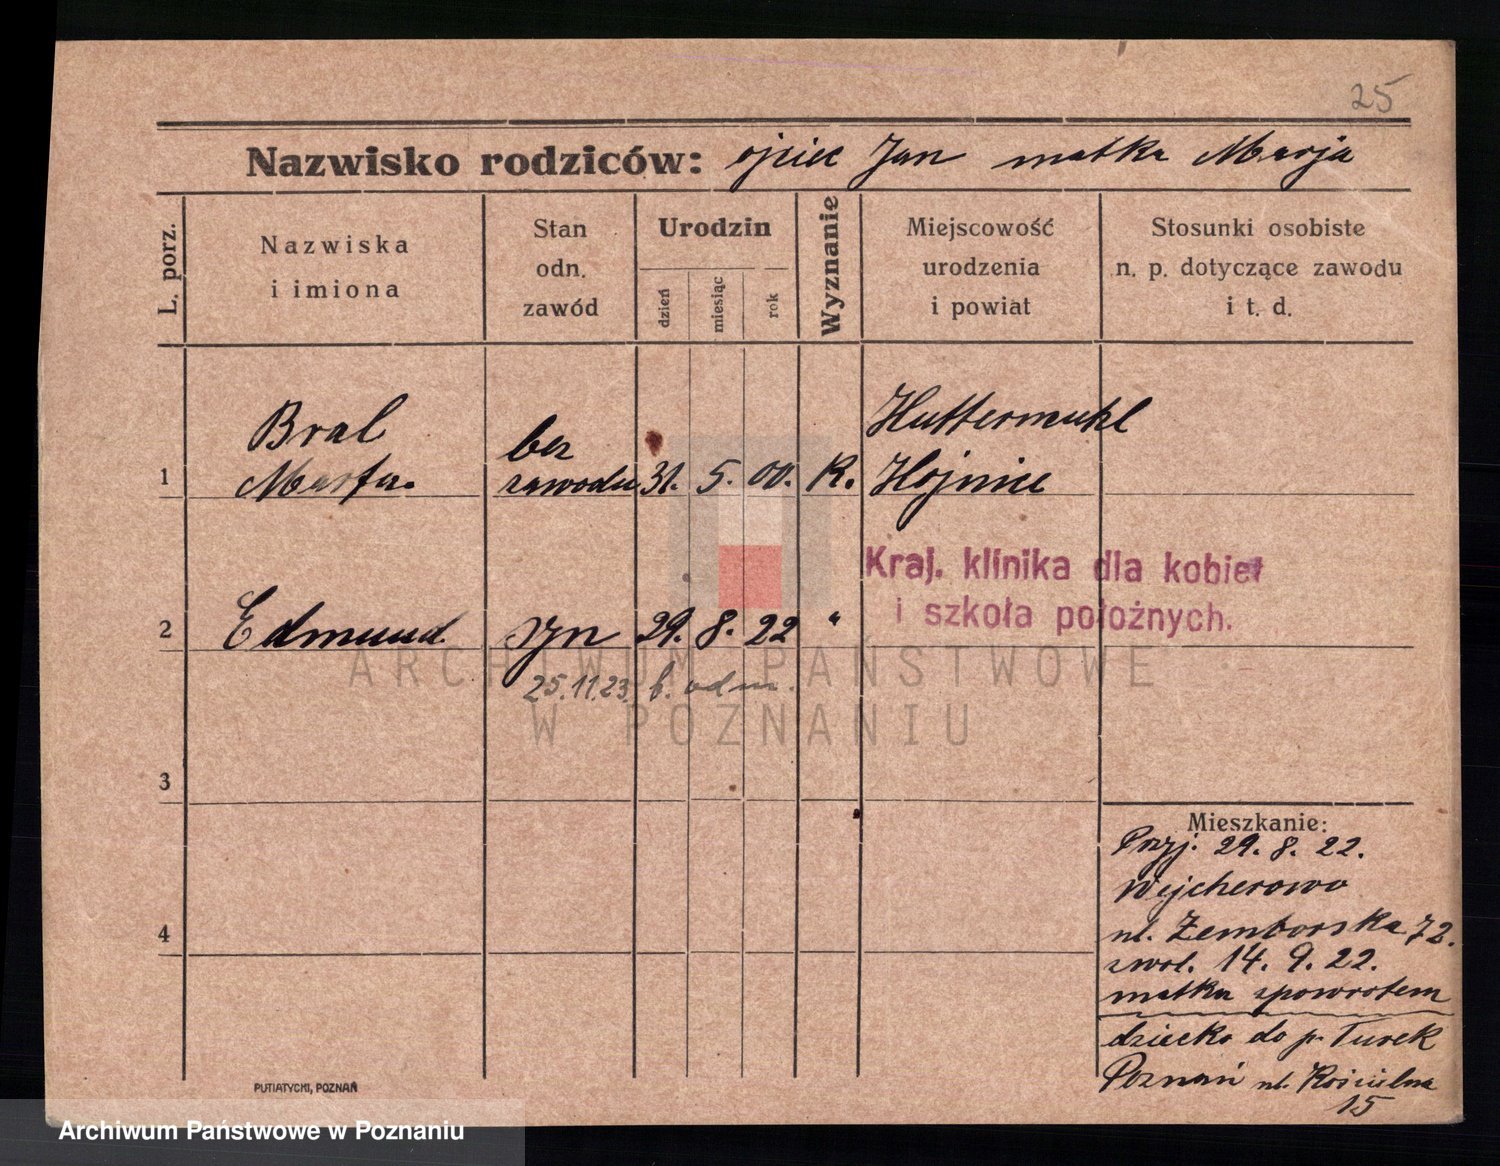 25
Nazwisko rodziców: ojciec Jan matka Marja
L. porz.
Nazwiska
i imiona
Stan
odn.
zawód
Urodzin
dzień
miesiąc
rok
Wyznanie
Miejscowość
urodzenia
i powiat
Stosunki osobiste
n. p. dotyczące zawodu
i t. d.
Bral
bez
Huttermuhl
1 Marta. zawodu 31. 5. 00. R. Hojnice
Kraj. klinika dla kobiet
i szkoła położnych.
2 Edmund syn 29. 8. 22 "
25.11.23 f. adm.
ARCHIWUM PAŃSTWOWE
W POZNANIU
3
4
Mieszkanie:
Przyj. 29. 8. 22.
Wejcherowo
ul. Zemborska 72.
zwol. 14. 9. 22.
matka spowrotem
dziecko do p. Turek
Poznań ul. Kościelna
15
PUTIATYCKI, POZNAŃ
Archiwum Państwowe w Poznaniu